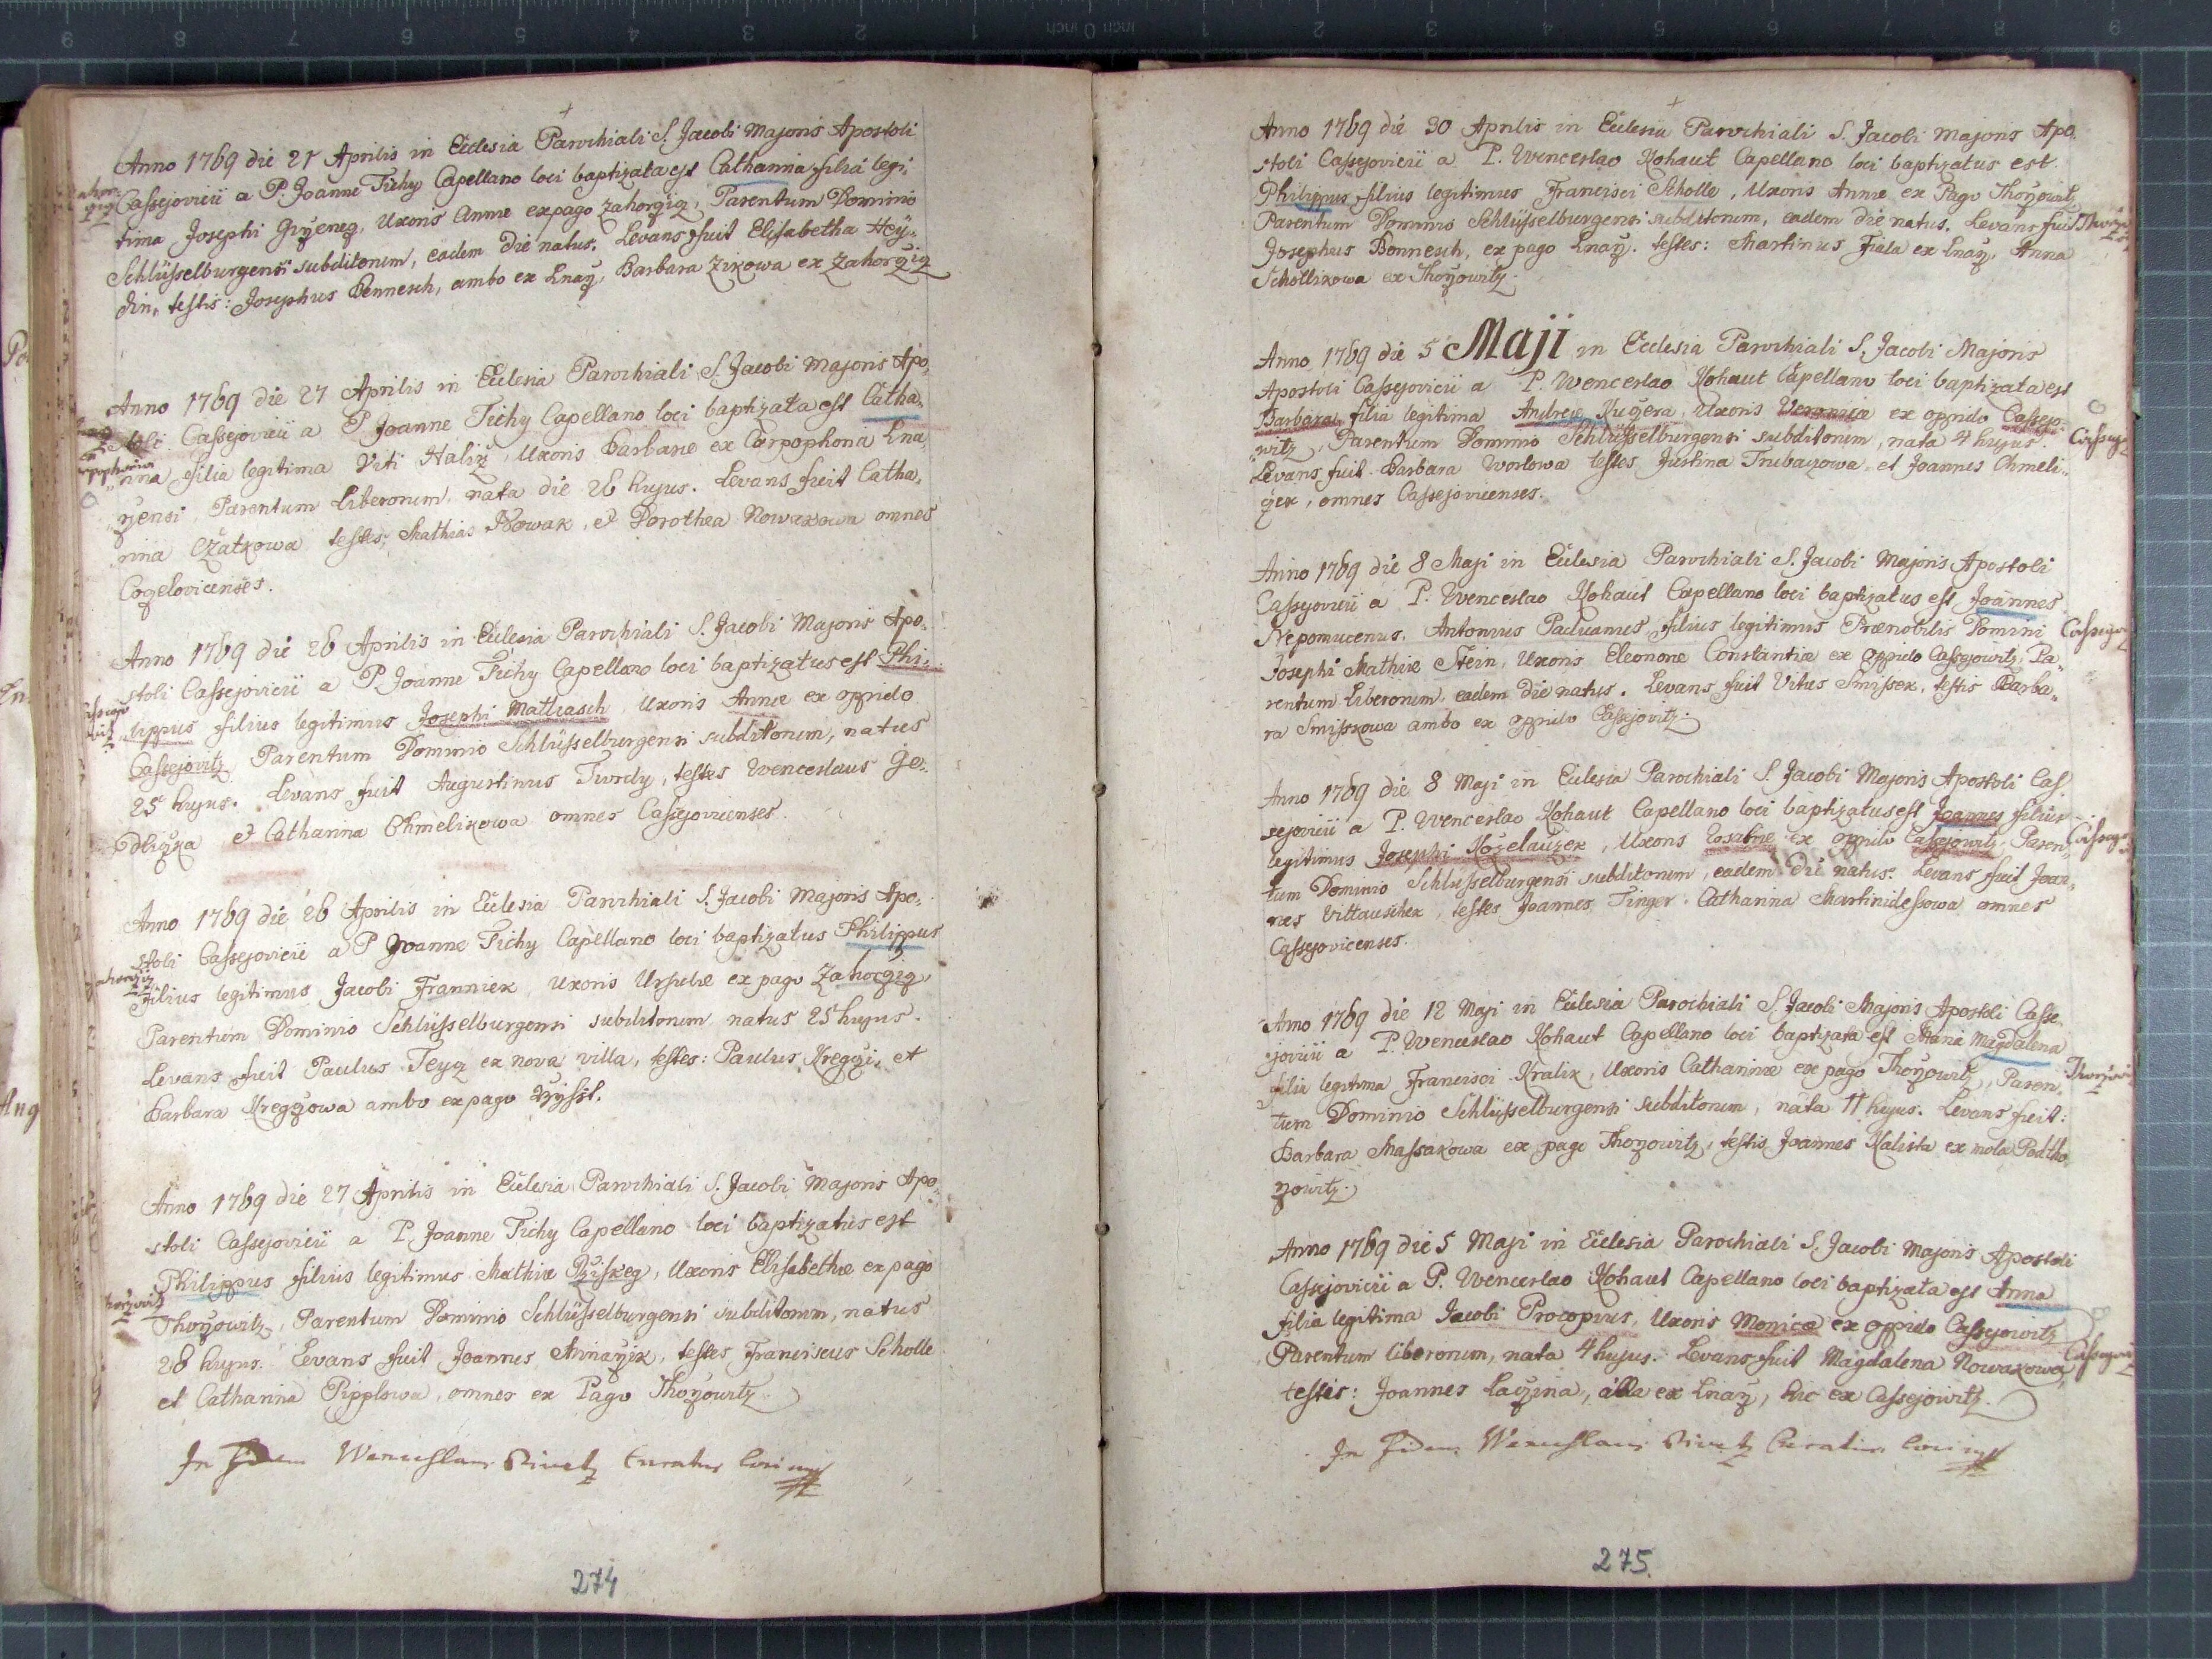 Anno 1769 die 21 Aprilis in Ecclesia Parochiali S. Jacobi Majoris Apostoli
Cassejovicii a P. Joanne Tichy Capellano loci baptizata est Catharina filia legi
tima Josephi Uxoris Annæ ex pago Zahorziz, Parentum Dominio
Schlüsselburgensi subditorum, eadem die natus. Levans fuit Elisabetha Hey
din, testis: Josephus Bennesch, ambo ex Lnarz, Barbara Zikowa ex Zahorziz
Anno 1769 die 27 Aprilis in Ecclesia Parochiali S. Jacobi Majoris Apo
stoli Cassejovicii a P Joanne Tichy Capellano loci baptizata est Catha
rina filia legitima Viti Haliz, Uxoris Barbaræ ex Carpophona Lna
rzensi Parentum Liberorum, nata die 26 hujus. Levans fuit Catha
rina Czatkowa testes: Mathias Nowak, et Dorothea Nowakowa omnes
Cozelovicenses.
Anno 1769 die 26 Aprilis in Ecclesia Parochiali S. Jacobi Majoris Apo
stoli Cassejovicii a P. Joanne Tichy Capellano loci baptizatus est Phi
lippus filius legitimus Josephi Mathiasch Uxoris Annæ ex oppido
Cassejovitz Parentum Dominio Schlüsselburgensi subditorum, natus
25 hujus. Levans fuit Augustinus Twrdy, testes Wenceslaus Je
dliczka et Catharina Chmelikowa omnes Cassejovicenses.
Anno 1769 die 26 Aprilis in Ecclesia Parochiali S. Jacobi Majoris Apo
stoli Cassejovicii a P Joanne Tichy Capellano loci baptizatus Philippus
filius legitimus Jacobi Franniek uxoris Ursulæ ex pago Zahorziz,
Parentum Dominio Schlüsselburgensi subditorum natus 25 hujus.
Levans fuit Paulus Teyz ex nova villa, testes: Paulus Kregczi, et
Barbara Kregczowa ambo ex pago
Anno 1769 die 27 Aprilis in Ecclesia Parochiali S. Jacobi Majoris Apo
stoli Cassejovicii a P. Joanne Tichy Capellano loci baptizatus est
Philippus filius legitimus Mathiæ Uxoris Elisabethæ ex pago
Thorzowitz, Parentum Dominio Schlüsselburgensi subditorum, natus
26 hujus. Levans fuit Joannes testes Franciscus Scholle
et Catharina Pipplowa, omnes ex Pago Thorzowitz
In fidem Wenceslaus Curatus loci mp
274
Anno 1769 die 30 Aprilis in Ecclesia Parochiali S. Jacobi Majoris Apo
stoli Cassejovicii a P. Wenceslao Kohaut Capellano loci baptizatus est
Philippus filius legitimus Francisci Scholle, Uxoris Annæ ex Pago Thorzowitz,
Parentum Dominio Schlüsselburgensi subditorum, eadem die natus. Levans fuit
Josephus Bennesch, ex pago Lnarz. testes: Martinus Fiala ex Lnarz, Anna
Schollikowa ex Thorzowitz.
Anno 1769 die 5 Maji in Ecclesia Parochiali S. Jacobi Majoris
Apostoli Cassejovicii a P. Wenceslao Kohaut Capellano loci baptizata est
Barbara filia legitima Andreæ Kuczera, Uxoris Veronicæ ex oppido Cassejo
witz, Parentum Dominio Schlüsselburgensi subditorum, nata 4 hujus.
Levans fuit Barbara Worlowa testes Justina Trubaczowa et Joannes Chmeli
czek, omnes Cassejovicenses.
Anno 1769 die 8 Maji in Ecclesia Parochiali S. Jacobi Majoris Apostoli
Cassejovicii a P. Wenceslao Kohaut Capellano loci baptizatus est Joannes
Nepomucenus, Antonius Paduanus filius legitimus Prænobilis Domini
Josephi Mathiæ Stein, Uxoris Eleonoræ Constantiæ ex oppido Cassejowitz, Pa
rentum Liberorum, eadem die natus. Levans fuit Vitus Smissek, testis Barba
ra Smisskowa ambo ex oppido Cassejovitz.
Anno 1769 die 8 Maji in Ecclesia Parochiali S. Jacobi Majoris Apostoli Cas
sejovicii a P. Wenceslao Kohaut Capellano loci baptizatus est Joannes filius
legitimus Josephi Kozelauzek, Uxoris Rosaliæ ex oppido Cassejowitz, Paren
tum Dominio Schlüsselburgensi subditorum, eadem die natus. Levans fuit Joan
nes Vittauschek, testes Joannes Tinger Catharina Martinidessowa omnes
Cassejovicenses.
Anno 1769 die 12 Maji in Ecclesia Parochiali S. Jacobi Majoris Apostoli Casse
jovicii a P. Wenceslao Kohaut Capellano loci baptizata est Maria Magdalena
filia legitima Francisci Kralik, Uxoris Catharinæ ex pago Thorzowitz, Paren
tum Dominio Schlüsselburgensi subditorum, nata 11 hujus. Levans fuit:
Barbara Massakowa ex pago Thorzowitz, testis Joannes Kalista ex mola Podtho
rzowitz.
Anno 1769 die 5 Maji in Ecclesia Parochiali S. Jacobi Majoris Apostoli
Cassejovicii a P. Wenceslao Kohaut Capellano loci baptizata est Anna
filia legitima Jacobi Procopius, Uxoris Monicæ ex oppido Cassejowitz
Parentum liberorum, nata 4 hujus. Levans fuit Magdalena Nowakowa,
testis: Joannes Laczina, illa ex Lnarz, hic ex Cassejowitz.
In fidem Wenceslaus Curatus loci mp
275.